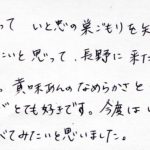 って いと恋の巣ごもりを知
たいと思って、長野に来た
。黄味あんのなめらかさと
がとても好きです。今度はい
べてみたいと思いました。